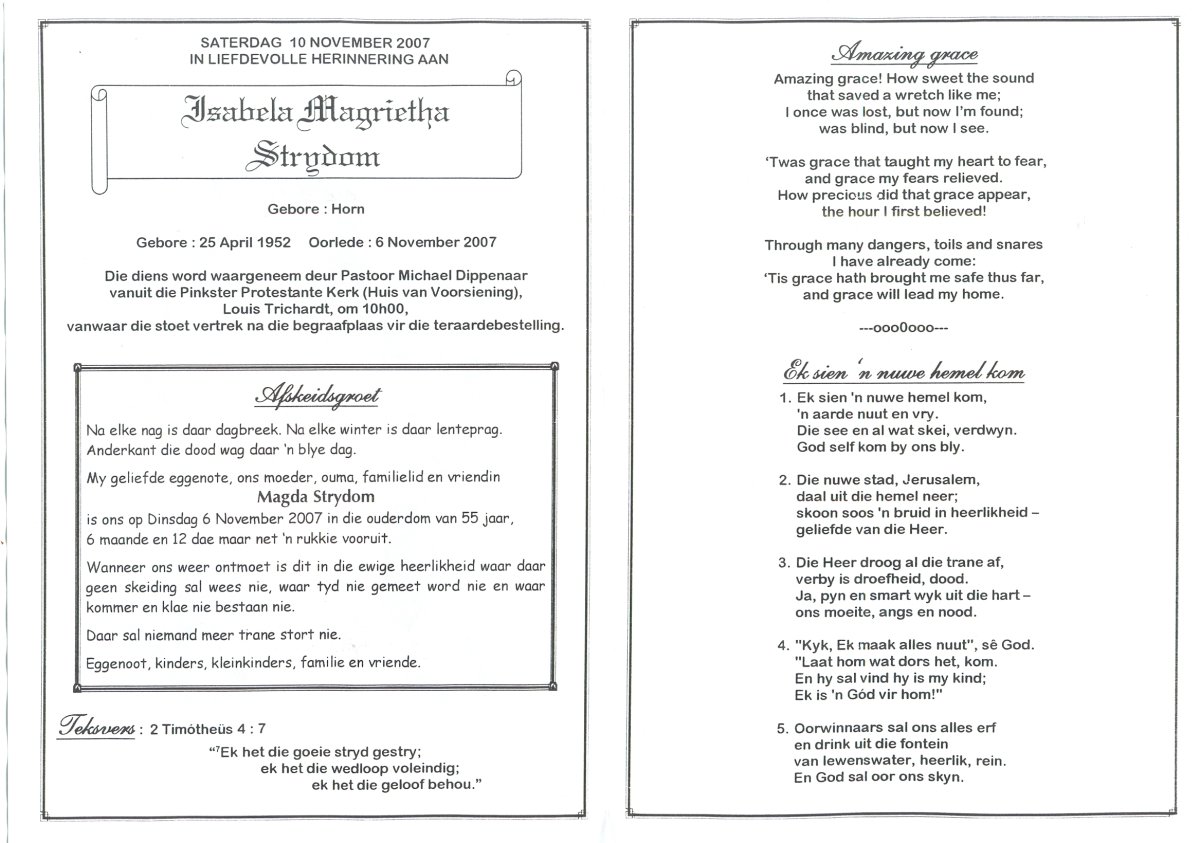 SATERDAG 10 NOVEMBER 2007
IN LIEFDEVOLLE HERINNERING AAN
Isabela Magrietha
Strydom
Gebore : Horn
Gebore : 25 April 1952 Oorlede : 6 November 2007
Die diens word waargeneem deur Pastoor Michael Dippenaar
vanuit die Pinkster Protestante Kerk (Huis van Voorsiening),
Louis Trichardt, om 10h00,
vanwaar die stoet vertrek na die begraafplaas vir die teraardebestelling.
Afskeidsgroet
Na elke nag is daar dagbreek. Na elke winter is daar lenteprag.
Anderkant die dood wag daar 'n blye dag.
My geliefde eggenote, ons moeder, ouma, familielid en vriendin
Magda Strydom
is ons op Dinsdag 6 November 2007 in die ouderdom van 55 jaar,
6 maande en 12 dae maar net 'n rukkie vooruit.
Wanneer ons weer ontmoet is dit in die ewige heerlikheid waar daar
geen skeiding sal wees nie, waar tyd nie gemeet word nie en waar
kommer en klae nie bestaan nie.
Daar sal niemand meer trane stort nie.
Eggenoot, kinders, kleinkinders, familie en vriende.
Teksvers : 2 Timótheüs 4 : 7
“⁷Ek het die goeie stryd gestry;
ek het die wedloop voleindig;
ek het die geloof behou.”
Amazing grace
Amazing grace! How sweet the sound
that saved a wretch like me;
I once was lost, but now I’m found;
was blind, but now I see.
‘Twas grace that taught my heart to fear,
and grace my fears relieved.
How precious did that grace appear,
the hour I first believed!
Through many dangers, toils and snares
I have already come:
‘Tis grace hath brought me safe thus far,
and grace will lead my home.
---ooo0ooo---
Ek sien 'n nuwe hemel kom
1. Ek sien 'n nuwe hemel kom,
'n aarde nuut en vry.
Die see en al wat skei, verdwyn.
God self kom by ons bly.
2. Die nuwe stad, Jerusalem,
daal uit die hemel neer;
skoon soos 'n bruid in heerlikheid –
geliefde van die Heer.
3. Die Heer droog al die trane af,
verby is droefheid, dood.
Ja, pyn en smart wyk uit die hart –
ons moeite, angs en nood.
4. "Kyk, Ek maak alles nuut", sê God.
"Laat hom wat dors het, kom.
En hy sal vind hy is my kind;
Ek is 'n Gód vir hom!"
5. Oorwinnaars sal ons alles erf
en drink uit die fontein
van lewenswater, heerlik, rein.
En God sal oor ons skyn.